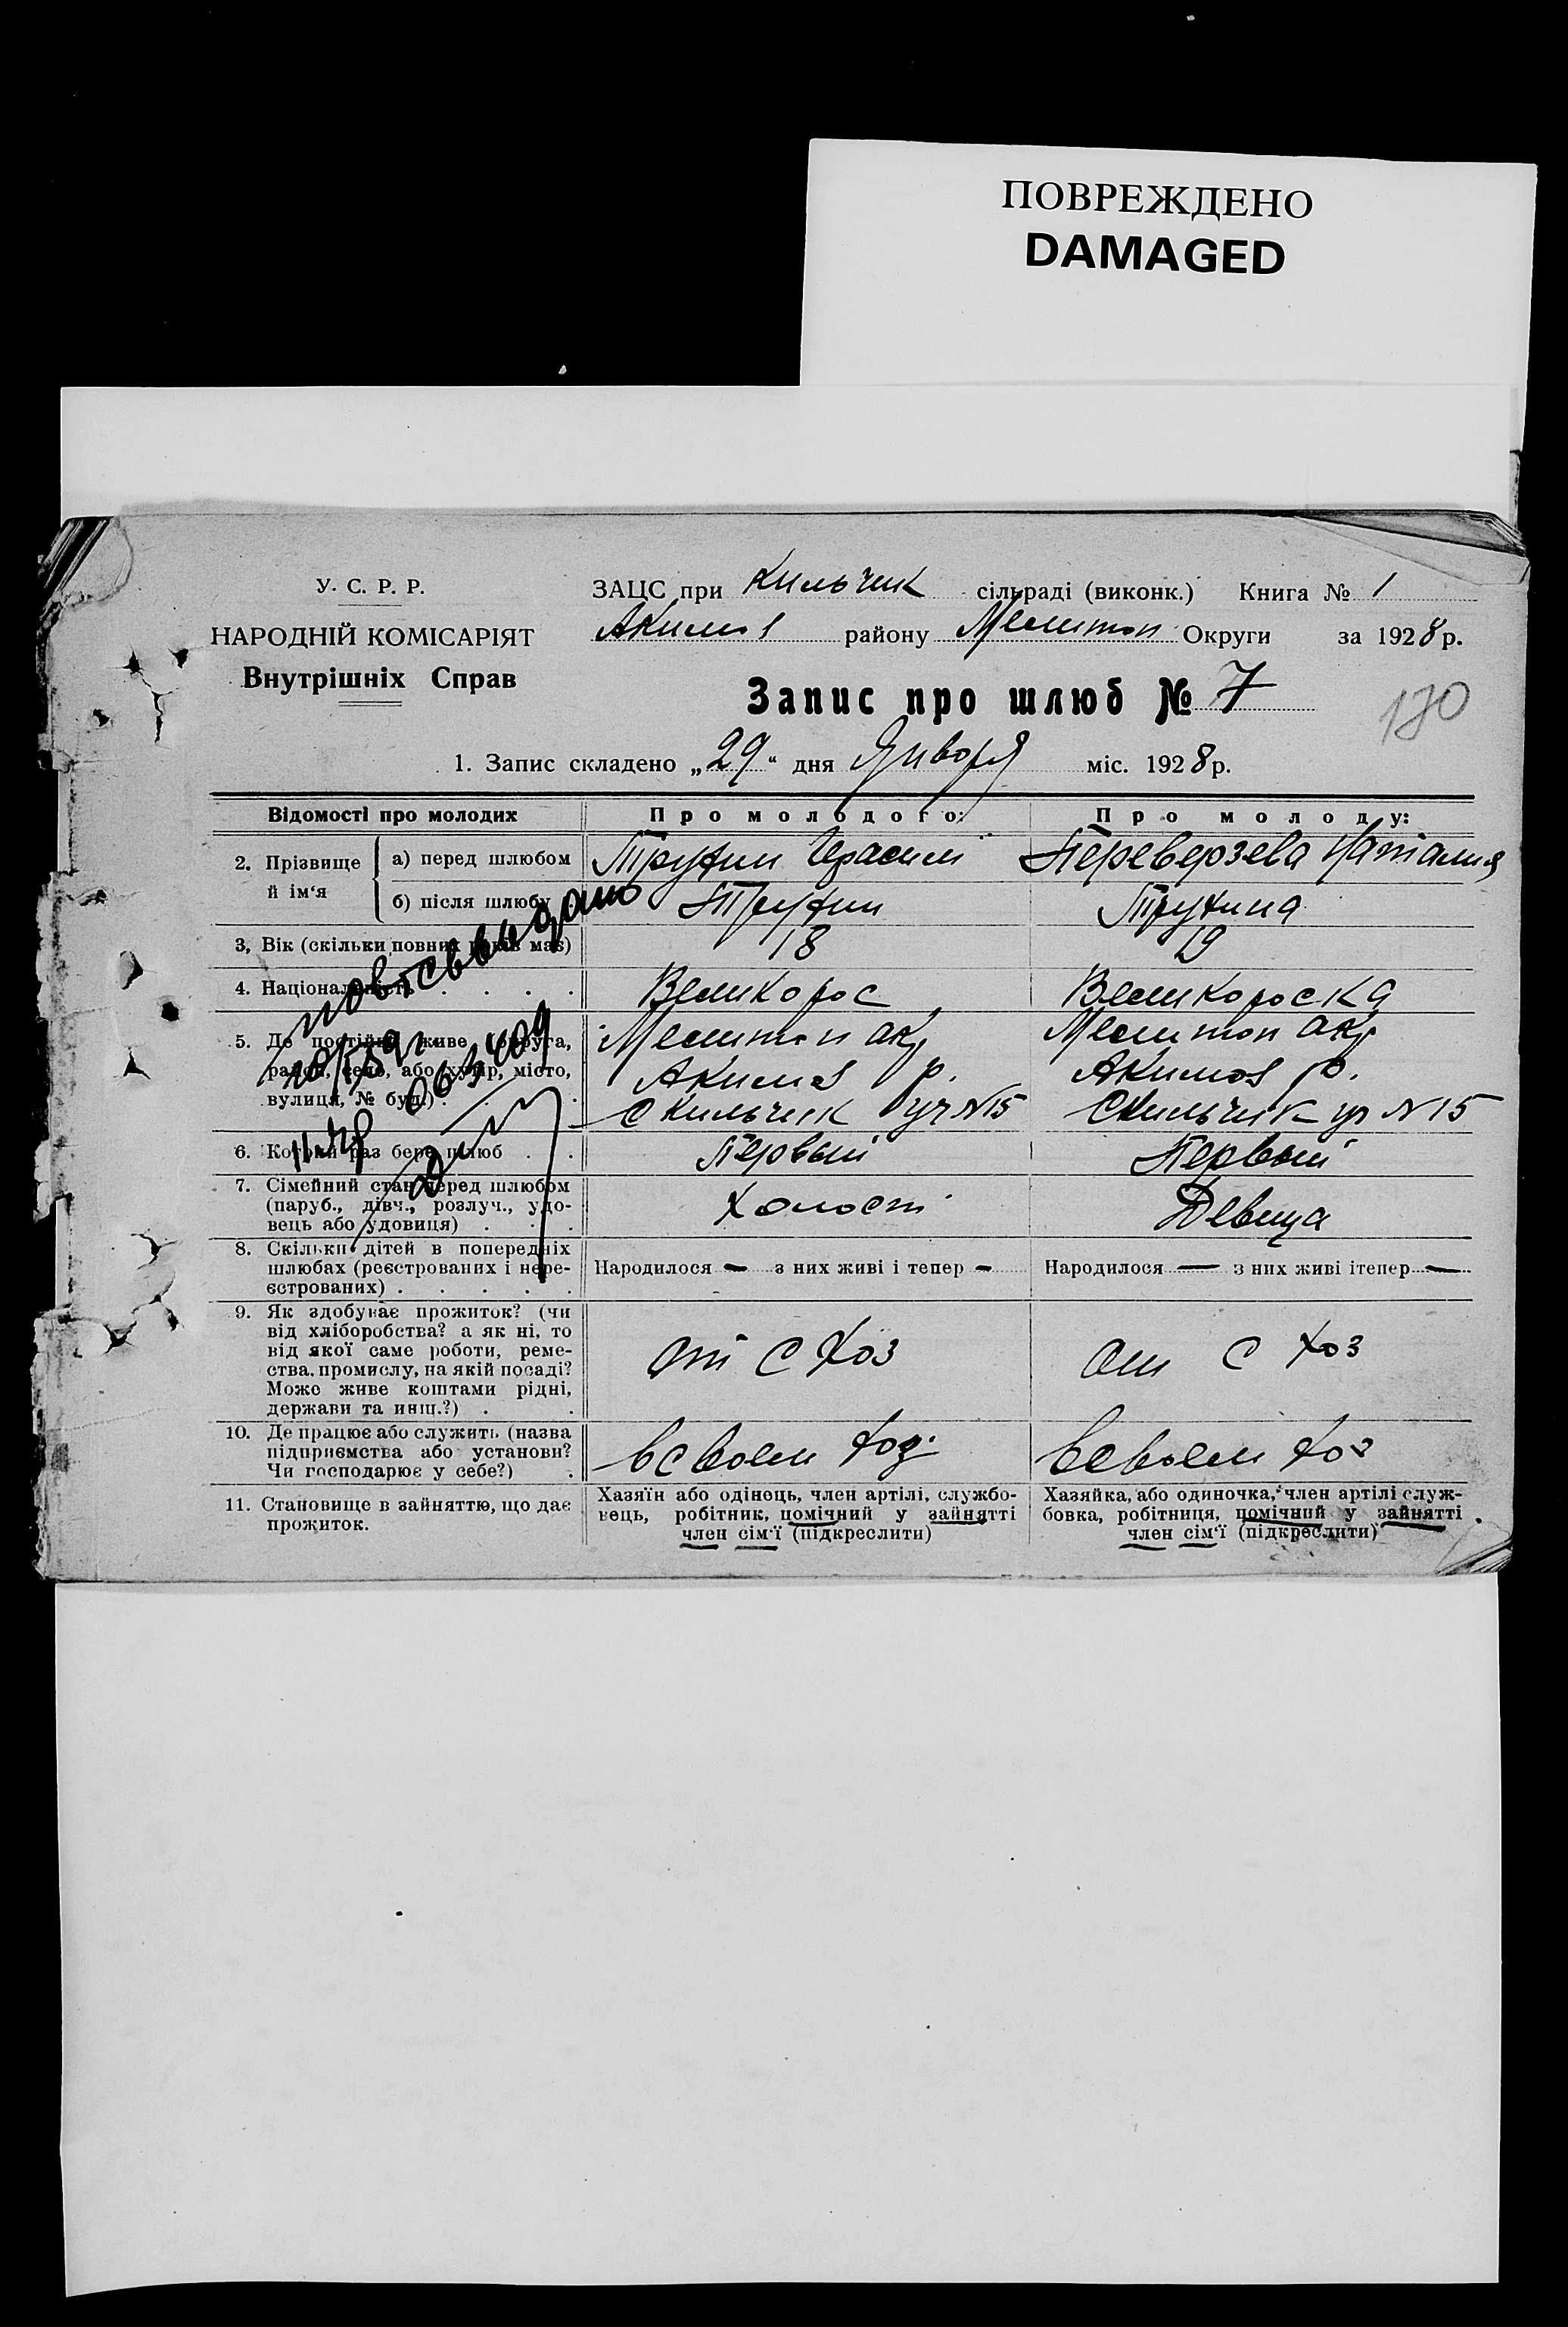 ПОВРЕЖДЕНО
DAMAGED
У. С. Р. Р.
НАРОДНІЙ КОМІСАРІЯТ
Внутрішніх Справ
ЗАЦС при Кильчик сільраді (виконк.) Книга № 1
Акимов району Мелитоп Округи за 1928 р.
Запис про шлюб № 7
130
1. Запис складено „29“ дня Января міс. 1928 р.
Відомості про молодих
Про молодого:
Про молоду:
2. Прізвище й ім‘я
а) перед шлюбом Трухин Герасим Переверзева Наталия
б) після шлюбу Трухин Трухина
3. Вік (скільки повних років має) 18 19
4. Національність . . . . Великорос Великороска
5. Де постійно живе (округа, Мелитоп окр Мелитоп окр
район, село, або хутір, місто, Акимов р. Акимов р.
вулиця, № буд.) . . . с Кильчик уч N15 с Кильчик уч N15
6. Котрий раз бере шлюб . . Первый Первый
7. Сімейний стан перед шлюбом
(паруб., дівч., розлуч., удо-
вець або удовиця) . . . Холост Девица
8. Скільки дітей в попередніх
шлюбах (реєстрованих і нере-
єстрованих) . . . . .
Народилося — з них живі і тепер —
Народилося — з них живі ітепер —
9. Як здобуває прожиток? (чи
від хліборобства? а як ні, то
від якої саме роботи, реме-
ства, промислу, на якій посаді?
Може живе коштами рідні,
держави та инщ.?) . .
от с хоз
от с хоз
10. Де працює або служить (назва
підприємства або установи?
Чи господарює у себе?) .
в своем хоз.
в своем хоз
11. Становище в зайняттю, що дає
прожиток.
Хазяїн або одінець, член артілі, службо-
вець, робітник, помічний у зайнятті
член сім‘ї (підкреслити)
Хазяйка, або одиночка, член артілі служ-
бовка, робітниця, помічний у зайнятті
член сім‘ї (підкреслити)
повт св выдано